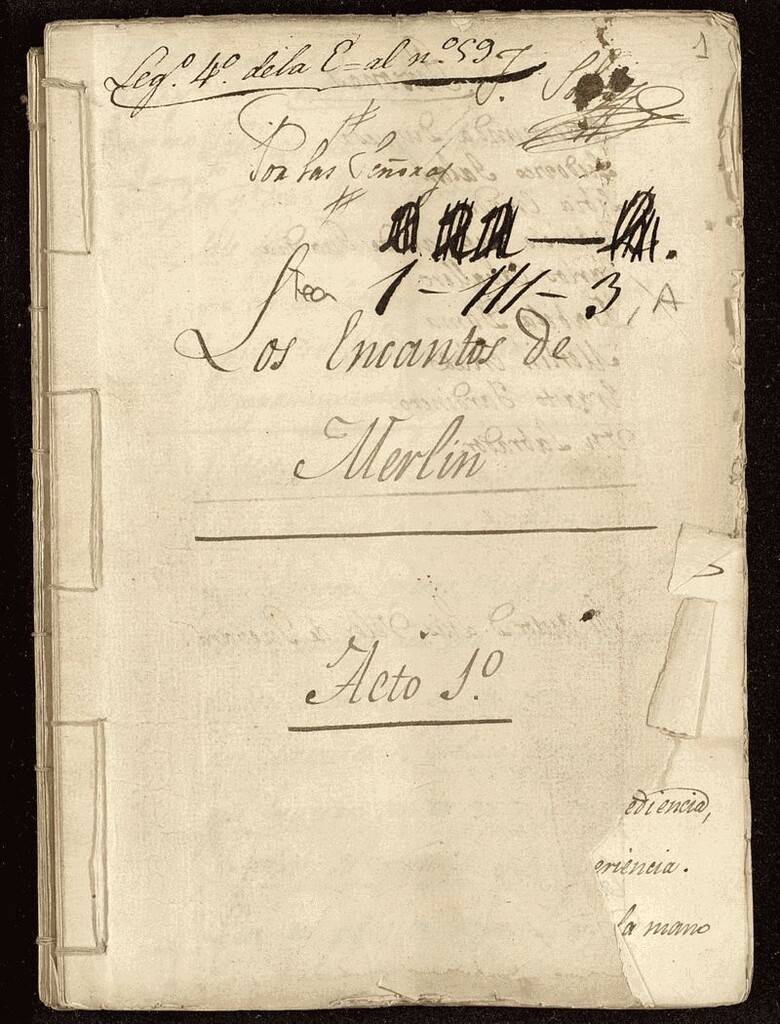 1
Legº. 4º. de la E – al nº. 59
Por las Señoras
Tea 1 – 111 – 3, A
Los Encantos de
Merlin
Acto 1º.
ediencia,
eriencia.
la mano